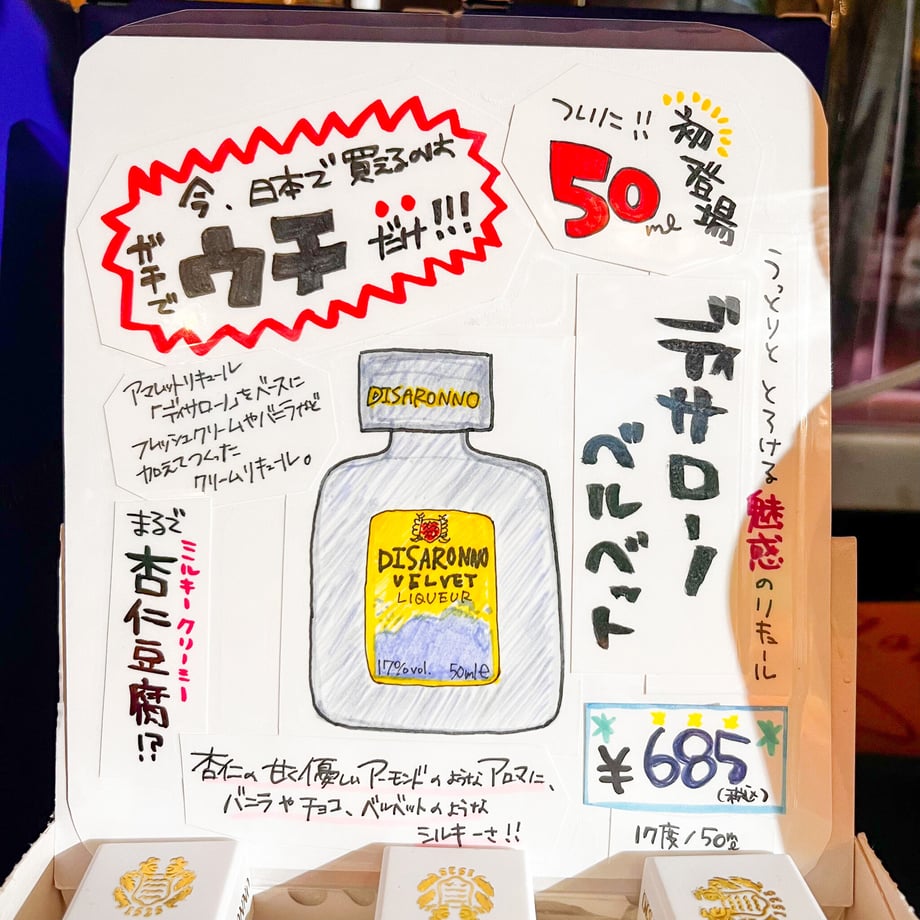 今、日本で買えるのは
ガチで
ウチ
だけ!!!
ついに!!
初登場
50ml
うっとりと とろける魅惑のリキュール
ディサローノ
ベルベット
アマレットリキュール
「ディサローノ」をベースに
フレッシュクリームやバニラなど
加えてつくった
クリームリキュール。
DISARONNO
DISARONNO
VELVET
LIQUEUR
17%vol. 50ml e
まるで
ミルキークリーミー
杏仁豆腐!?
¥685
(税込)
17度/50ml
杏仁の甘く優しいアーモンドのようなアロマに、
バニラやチョコ、ベルベットのような
シルキーさ!!
1525